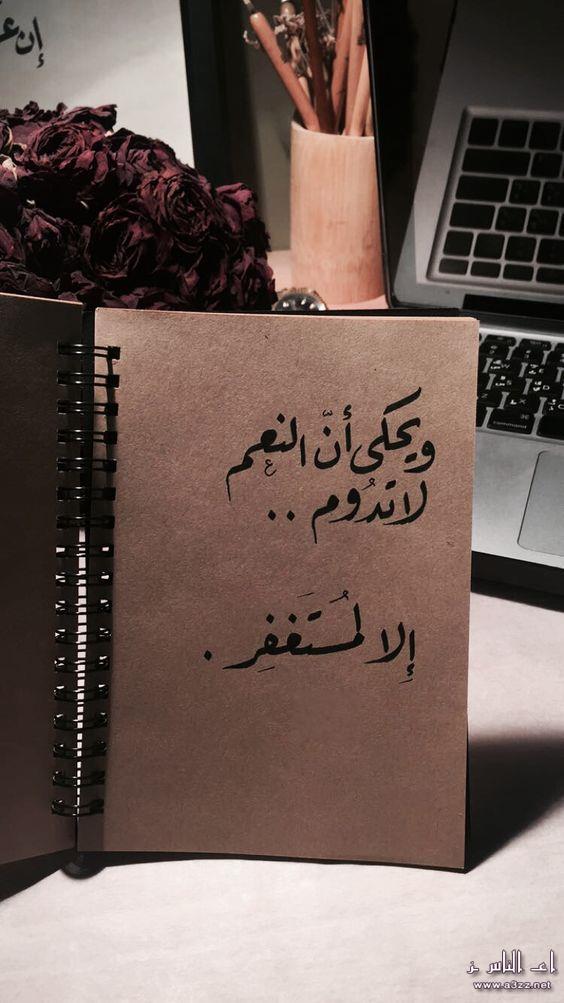 إن
ويحكى أنّ النعم
لا تدُوم ..
إِلا لمُستَغفِرِ .
command
www.a3zz.net